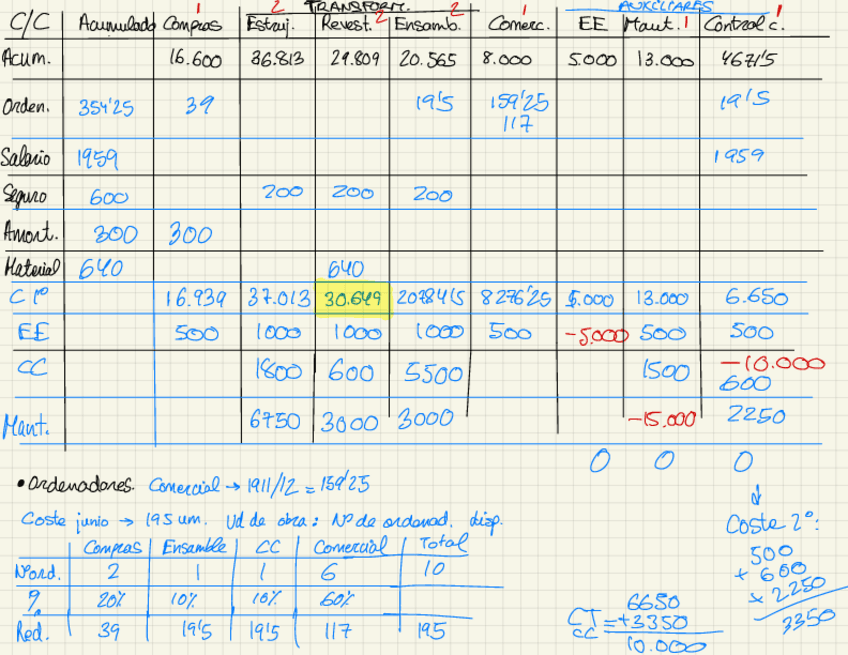 TRANSFORM. AUXILIARES
C/C Acumulado Compras 1 Estruj. 2 Revest. 2 Ensamb. 2 Comerc. 1 EE Maut. 1 Control c. 1
Acum. 16.600 36.813 29.809 20.565 8.000 5.000 13.000 4671'5
Orden. 354'25 39 19'5 159'25 19'5
117
Salario 1959 1959
Seguro 600 200 200 200
Amort. 300 300
Material 640 640
C 1º 16.939 37.013 30.649 20784'5 8276'25 5.000 13.000 6.650
EE 500 1000 1000 1000 500 -5.000 500 500
CC 1800 600 5500 1500 -10.000
600
Maut. 6750 3000 3000 -15.000 2250
0 0 0
• Ordenadores. Comercial → 1911/12 = 159'25
Coste junio → 195 um. Ud de obra: Nº de ordenad. disp.
Compras Ensamble CC Comercial Total
Nº ord. 2 1 1 6 10
% 20% 10% 10% 60%
Red. 39 19'5 19'5 117 195
Coste 2º:
500
+ 600
+ 2250
3350
6650
CT CC = +3350
10.000